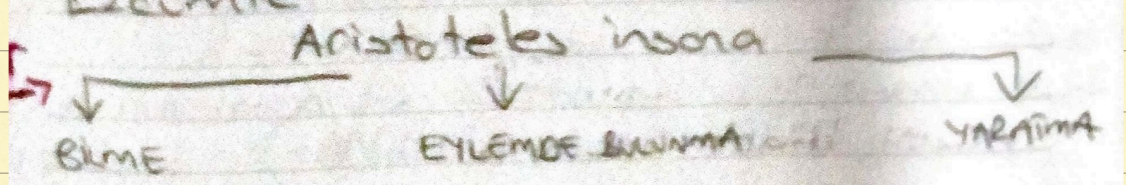 Aristoteles insana
BİLME EYLEMDE BULUNMA YARATMA